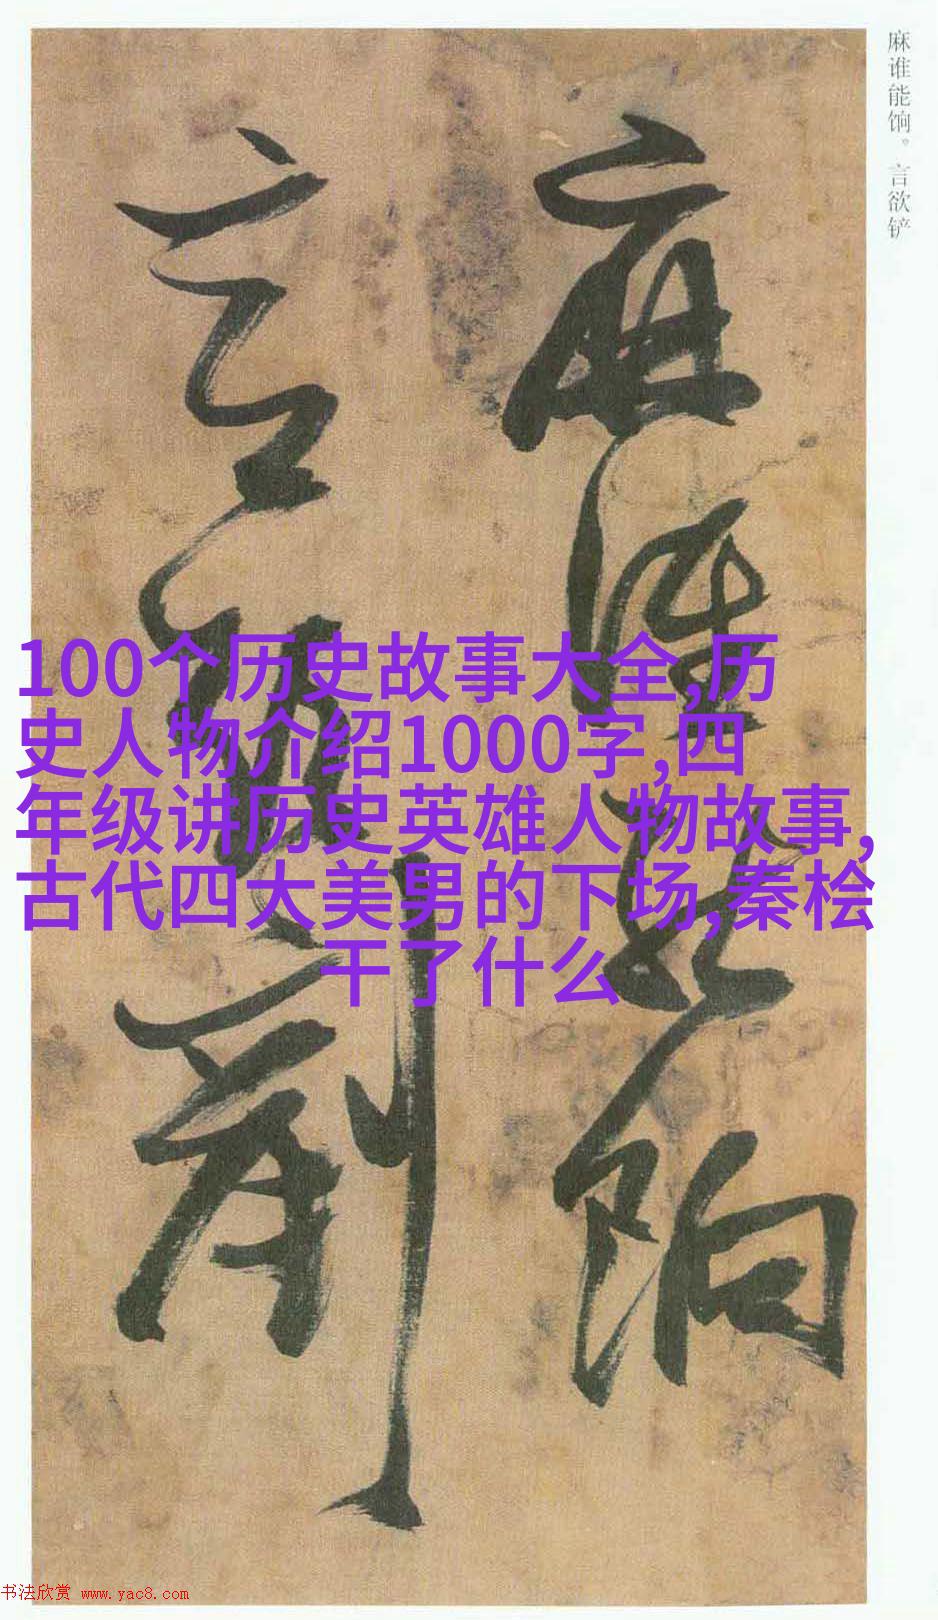 麻谁能饷。言欲铲
麻谁能饷
言欲剷
100个历史故事大全,历
史人物介绍1000字,四
年级讲历史英雄人物故事,
古代四大美男的下场,秦桧
干了什么
书法欣赏 www.yac8.com